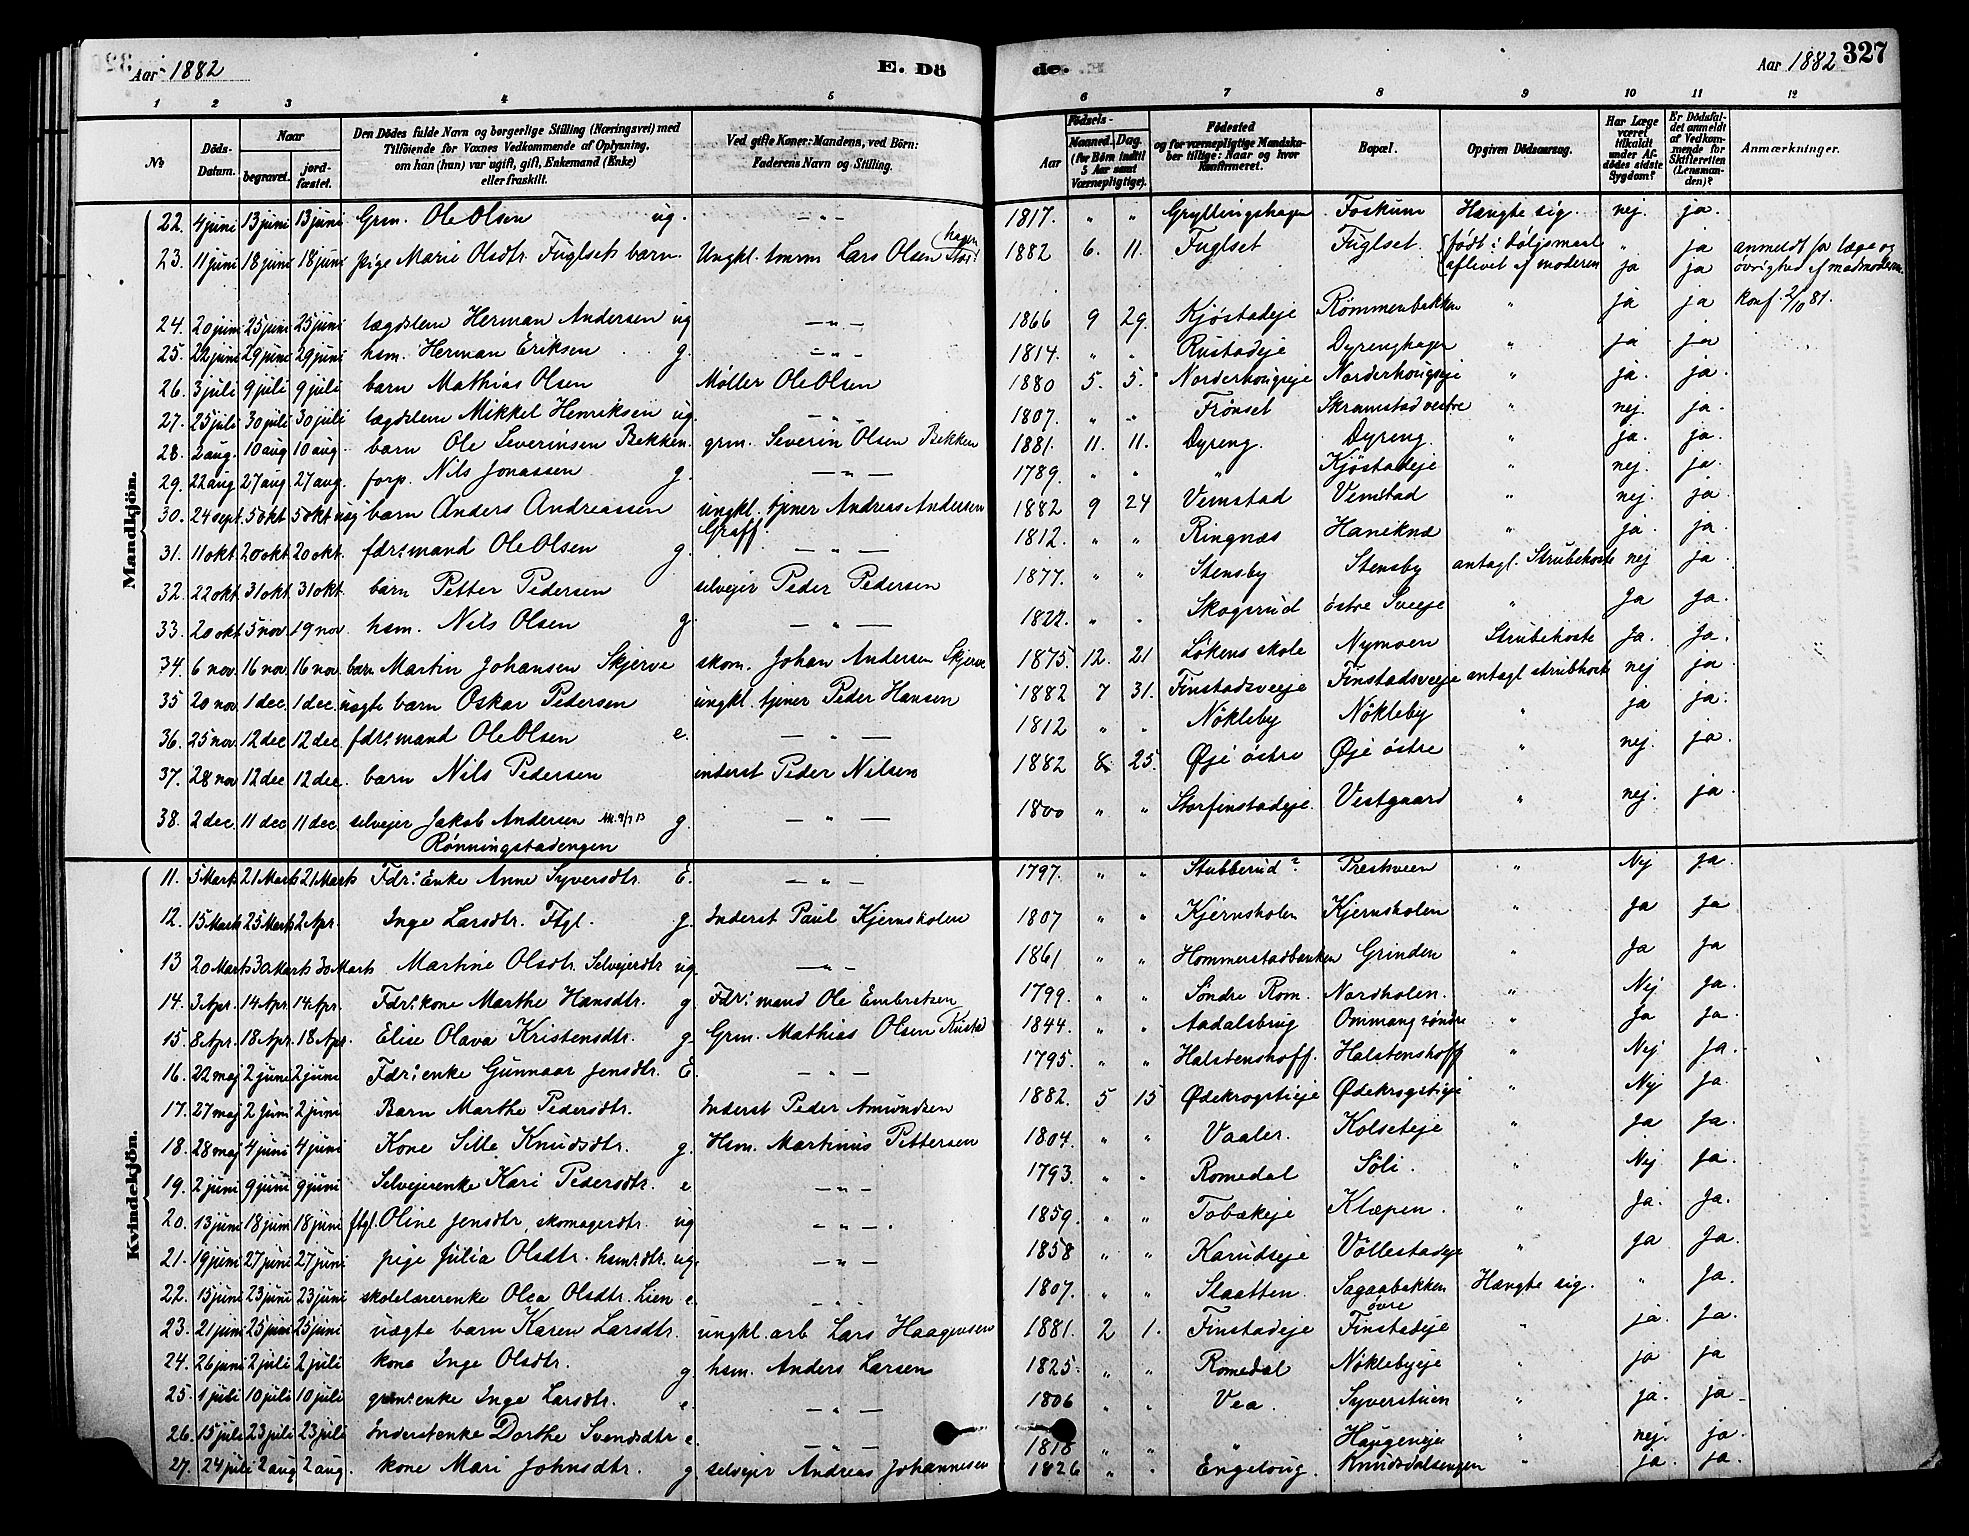 Aar 1882
E. Dö
de.
Aar 1882
327
1 2 3 4 5 6 7 8 9 10 11 12
№
Döds-Datum.
Naar
begravet.
jordfæstet.
Den Dödes fulde Navn og borgerlige Stilling (Næringsvei) med
Tilföiende for Voxnes Vedkommende af Oplysning,
om han (hun) var ugift, gift, Enkemand (Enke)
eller fraskilt.
Ved gifte Koner: Mandens, ved Börn:
Faderens Navn og Stilling.
Födsels-
Aar
Maaned. Dag.
(for Börn indtil 5 Aar samt Værnepligtige).
Födested
og for værnepligtige Mandskaber tillige: Naar og hvor Konfirmeret.
Bopæl.
Opgiven Dödsaarsag.
Har Læge været tilkaldt under Afdödes sidste Sygdom?
Er Dödsfaldet anmeldt af Vedkommende for Skifteretten (Lensmanden)?
Anmærkninger.
Mandkjön.
22. 4 juni 13 juni 13 juni Grm. Ole Olsen ug. — " — 1817. " " Gryllingshagen Foskum Hængte sig. nej. ja.
23. 11 juni 18 juni 18 juni pige Marie Olsdtr. Fuglsets barn. Ungkl. tømm Lars Olsen Storhagen 1882 6. 11. Fuglset Fuglset. født i døljsmaal " ja anmeldt for læge og
aflivet af moderen ja ja övrighed af madmoderen
24. 20 juni 25 juni 25 juni lægdslem Herman Andersen ug — " — 1866 9 29. Kjøstadeje Rømmenbakken " ja ja konf. 2/10 81.
25. 22 juni 29 juni 29 juni hsm. Herman Eriksen g. — " — 1814. " " Rustadeje Dyrenghagen " ja ja
26. 3 juli 9 juli 9 juli barn Mathias Olsen Møller Ole Olsen 1880 5. 5. Norderhougseje Norderhougseje " ja. ja.
27. 25 juli 30 juli 30 juli lægdslem Mikkel Henriksen ug. — " — 1807. " " Frønset Skramstad vestre " nej. ja.
28. 2 aug. 10 aug 10 aug. barn Ole Severinsen Bekken. grm. Severin Olsen Bekken 1881. 11. 11. Dyreng. Dyreng. " ja. ja.
29. 22 aug 27 aug 27 aug. forp. Nils Jonassen g. — " — 1789. " " " Kjöstadeje " nej. ja.
30. 24 sept. 5 okt 5 okt uæg barn Anders Andreassen ungkl. tjener Andreas Andersen Graff. 1882 9 24 Vemstad Vemstad " nej. ja.
31. 11 okt 20 okt. 20 okt. fdr: mand Ole Olsen g. — " — 1812. " " Ringnæs Haneknæ " ja. ja.
32. 22 okt. 31 okt. 31 okt. barn Petter Pedersen selvejer Peder Pedersen 1877. " " Stensby Stensby antagl. Strubehoste nej ja.
33. 20 okt 5 nov. 19 nov. hsm. Nils Olsen g. — " — 1822. " " Skogsrud östre Sveeje " Ja ja.
34. 6 nov. 16 nov. 16 nov. barn Martin Johansen Skjerve skom. Johan Andersen Skjerve 1875. 12. 21 Løkens skole Nymoen Strubehoste Ja. Ja.
35 20 nov. 1 dec. 1 dec. uægte barn Oskar Pedersen ungkl. tjener Peder Hansen 1882 7 31. Finstadsveeje Finstadsveeje antagl strubhoste nej ja
36. 25 nov. 12 dec 12 dec. fdr: mand Ole Olsen e. — " — 1812 " " Nökleby Nökleby " ja ja.
37. 28 nov 12 dec 12 dec. barn Nils Pedersen inderst Peder Nilsen 1882 8. 25. Øje östre Øje östre " nej. ja.
38. 2 dec. 11 dec 11 dec. selvejer Jakob Andersen g. — " — 1800 " " Storfinstadeje. Vestgaard " nej. ja.
Rønningstadengen
Kvindekjön.
11. 5 Marts 21 Marts 21 Marts Fdr: Enke Anne Syversdtr. E. — " — 1797. " " Stubberud? Preskveen " Nej ja.
12. 15 Marts 25 Marts 2 Apr. Inge Larsdtr. Ftgl. g. Inderst Paul Kjernskolen 1807 " " Kjernsholen Kjernsholen " ja ja
13 20 Marts 30 Marts 30 Marts Martine Olsdtr. Selvejerdtr ug. — " — 1861 " " Hommerstadbanken Grinden " Ja Ja
14. 3 Apr. 14 Apr. 14 Apr. Fdr: kone Marthe Hansdtr. g. Fdr: mand Ole Embretsen 1799. " " Söndre Rom. Nordholen. " Nej Ja.
15. 8 Apr. 18 Apr. 18 Apr. Elise Olava Kristensdtr. g. Grm. Mathias Olsen Rustad 1844. " " Aadalsbrug Ommang söndre " Ja Ja.
16. 22 maj 2 juni 2 juni Fdr: enke Gunnaar Jensdtr. E. — " — 1795. " " Halstenshoff. Halstenshoff " Nej. Ja.
17. 27 maj 2 juni 2 juni Barn Marthe Pedersdtr. Inderst Peder Amundsen 1882. 5 15 Ødekrogstieje Ødekrogstieje " Nej Ja.
18. 28 maj 4 juni 4 juni Kone Sille Knudsdtr. g. Hsm. Martinus Pettersen 1804. " " Vaaler. Kolseteje " ja Ja.
19. 2 juni 9 juni 9 juni Selvejerenke Kari Pedersdtr. e — " — 1793. " " Romedal Söli. " Nej Ja.
20. 13 juni 18 juni 18 juni ftgl. Oline Jensdtr, skomagerdtr. ug — " — 1859. " " Tobækeje Klæpen. " Ja. Ja.
21. 19 juni 27 juni 27 juni pige Julia Olsdtr. hsm:dtr. ug. — " — 1858 " " Karudseje Völlestadeje " ja Ja.
22. 15 juni 23 juni 23 juni skolelærerenke Olea Olsdtr. Lien e. — " — 1807. " " Staatten. Sagaabakken Hængte sig. " Ja.
23. 21 juni 25 juni 25 juni uægte barn Karen Larsdtr. ungkl. arb Lars Haagensen 1881. 2 1. Finstadeje övre Finstadeje " ja. Ja.
24. 26 juni 2 juli 2 juli kone Inge Olsdtr. g. hsm. Anders Larsen 1825. " " Romedal Nöklebyeje " ja ja
25. 1 juli 10 juli 10 juli grm: enke Inge Larsdtr. e. — " — 1806 " " Vea. Syverstuen " ja. ja
26. 15 juli 23 juli 23 juli Inderstenke Dorthe Svendsdtr e. — " — 1818 " " " Haugeneje " nej. ja.
27. 24 juli 2 aug 2 aug. kone Mari Johnsdtr. g. selvejer Andreas Johannesen 1826 " " Engeloug. Knudsdalsengen " ja. ja.